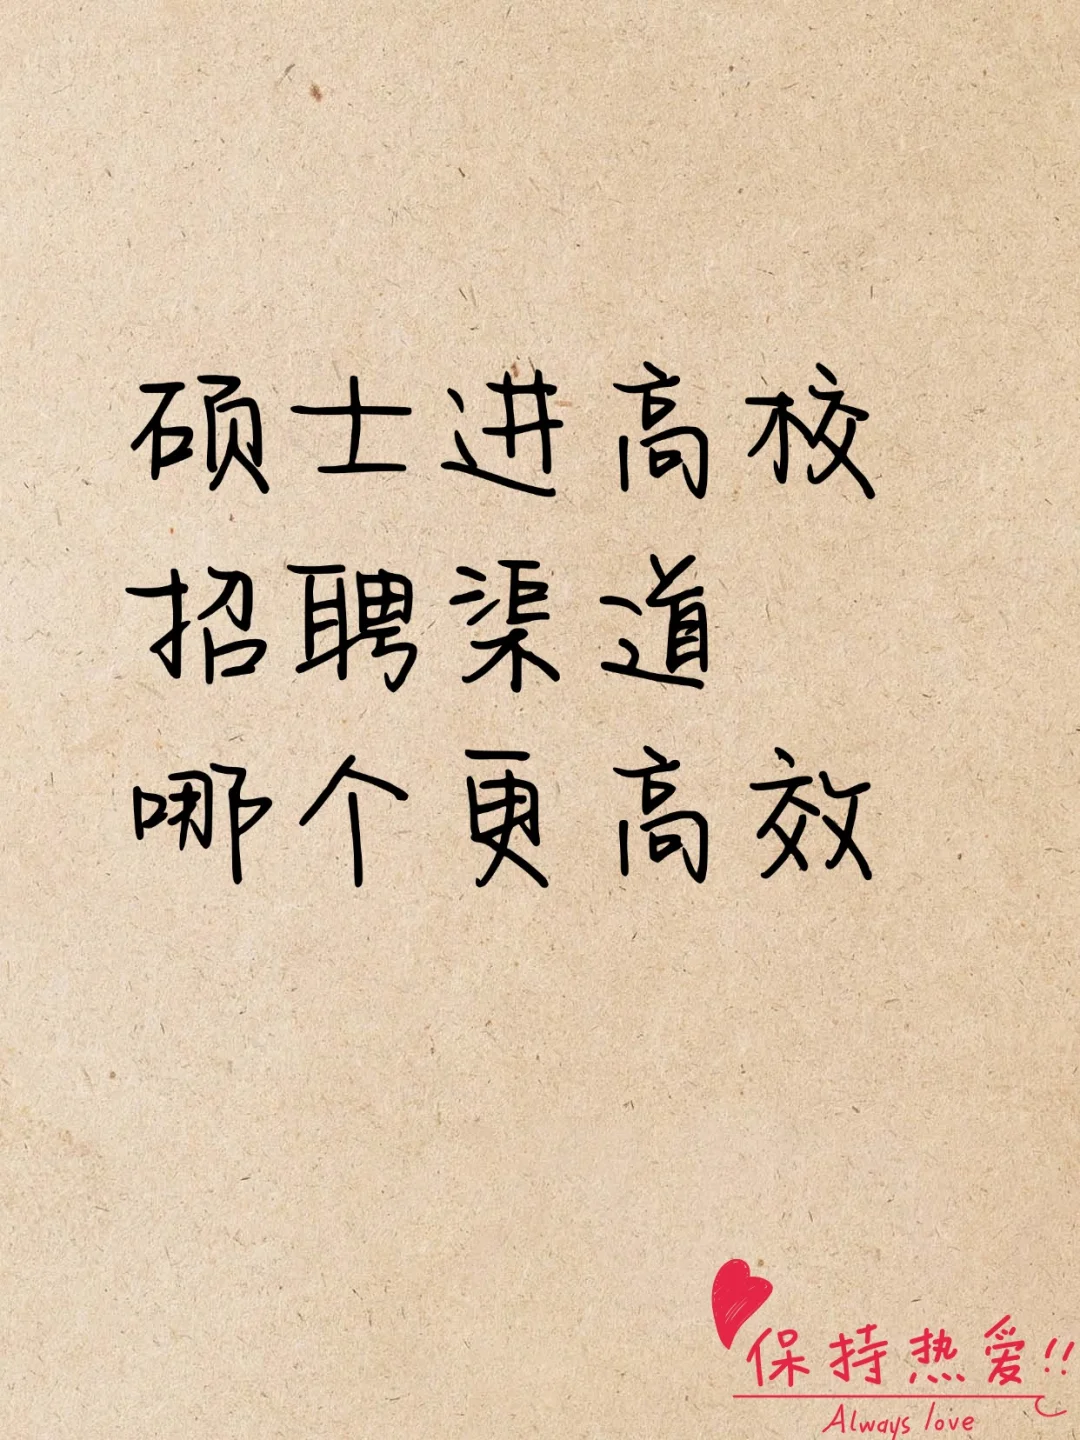 硕士进高校
招聘渠道
哪个更高效
保持热爱!!
Always love